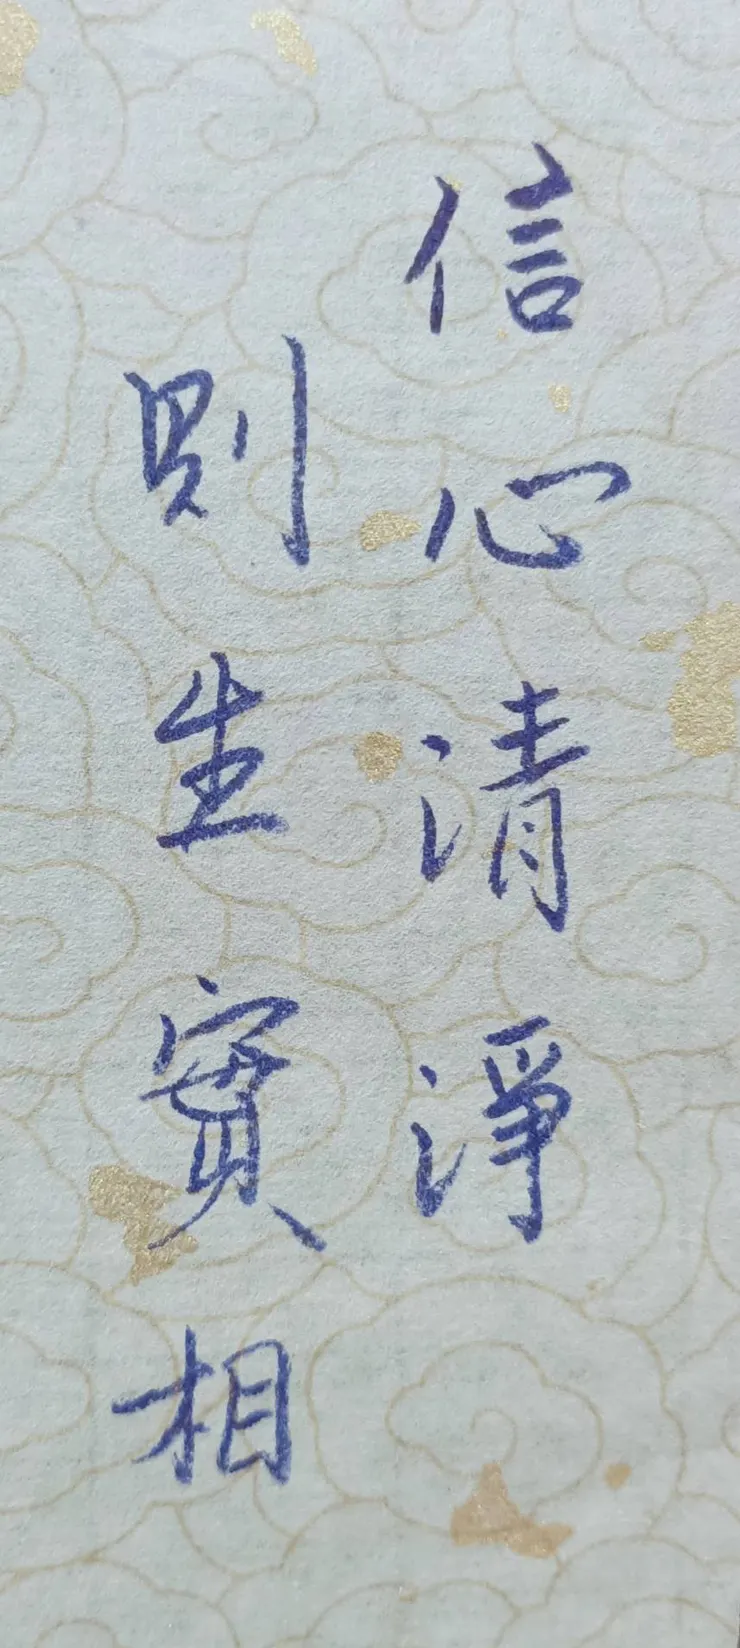 信心清淨
則生實相